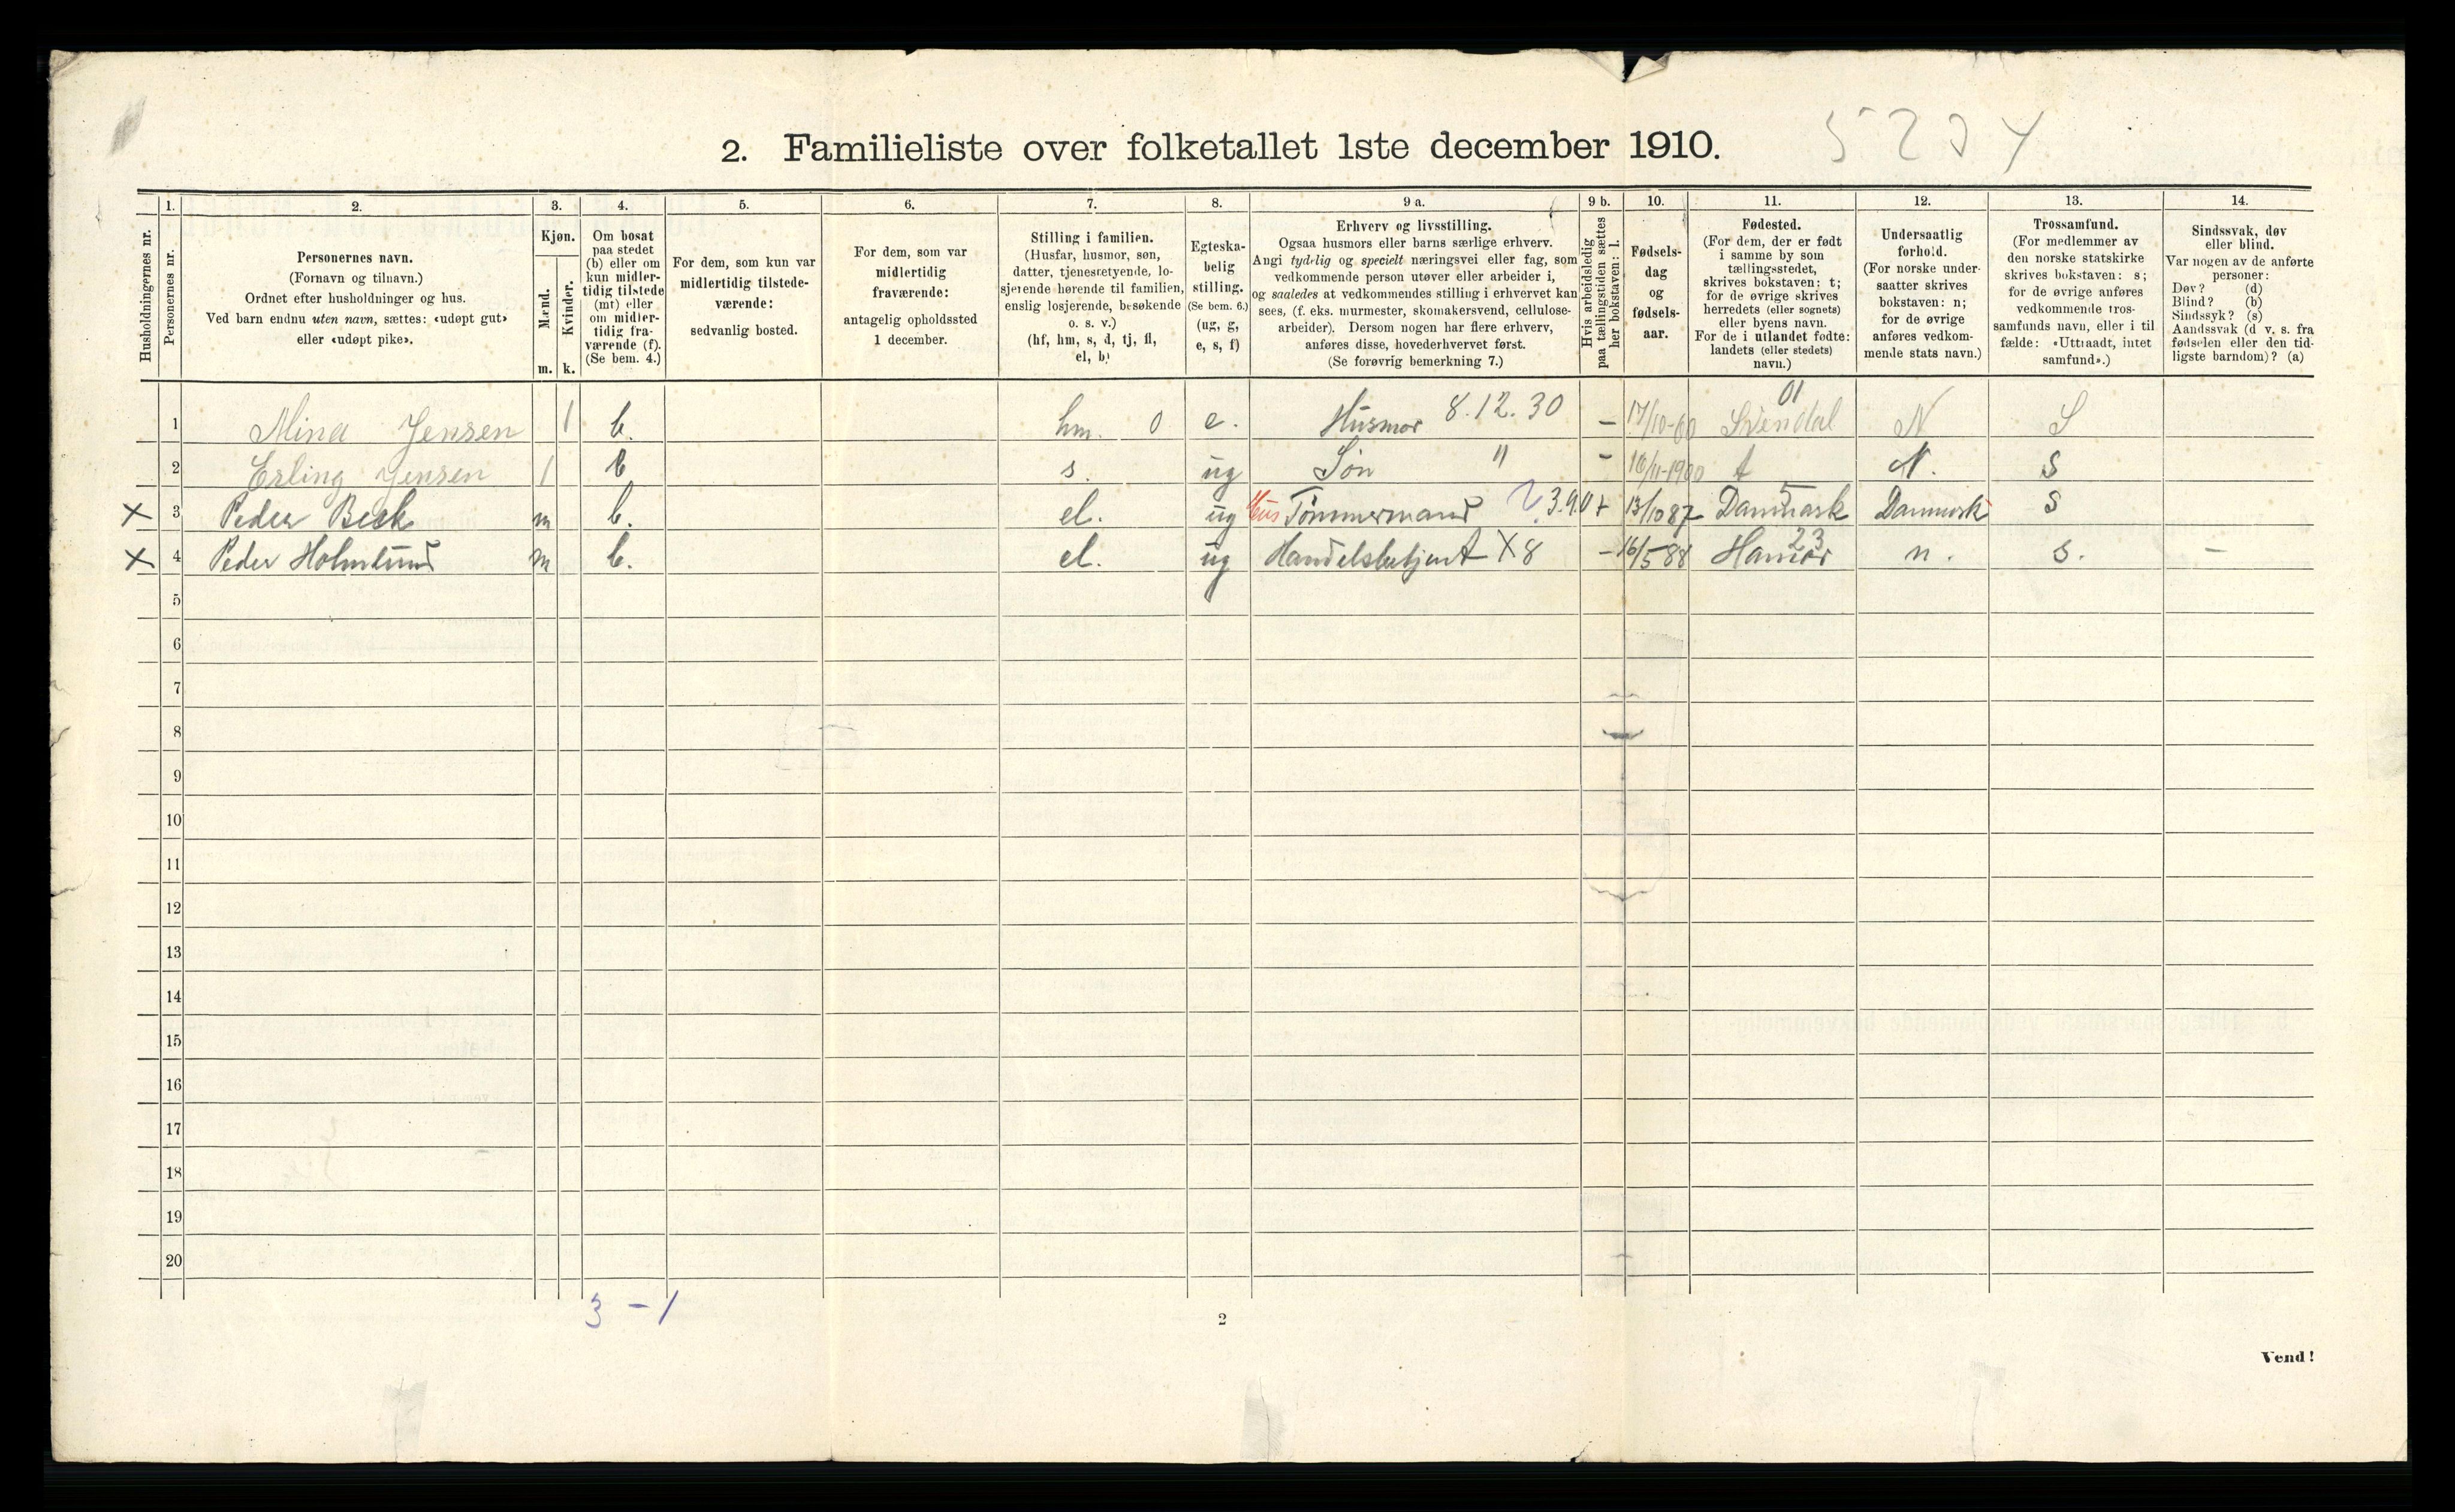 2. Familieliste over folketallet 1ste december 1910.
Husholdningernes nr.
1. Personernes nr.
2. Personernes navn.
(Fornavn og tilnavn.)
Ordnet efter husholdninger og hus.
Ved barn endnu uten navn, sættes: «udøpt gut»
eller «udøpt pike».
3. Kjøn.
Mænd. m.
Kvinder. k.
4. Om bosat
paa stedet
(b) eller om
kun midler-
tidig tilstede
(mt) eller
om midler-
tidig fra-
værende (f).
(Se bem. 4.)
5. For dem, som kun var
midlertidig tilstede-
værende:
sedvanlig bosted.
6. For dem, som var
midlertidig
fraværende:
antagelig opholdssted
1 december.
7. Stilling i familien.
(Husfar, husmor, søn,
datter, tjenestetyende, lo-
sjerende hørende til familien,
enslig losjerende, besøkende
o. s. v.)
(hf, hm, s, d, tj, fl,
el, b)
8. Egteska-
belig
stilling.
(Se bem. 6.)
(ug, g,
e, s, f)
9 a. Erhverv og livsstilling.
Ogsaa husmors eller barns særlige erhverv.
Angi tydelig og specielt næringsvei eller fag, som
vedkommende person utøver eller arbeider i,
og saaledes at vedkommendes stilling i erhvervet kan
sees, (f. eks. murmester, skomakersvend, cellulose-
arbeider). Dersom nogen har flere erhverv,
anføres disse, hovederhvervet først.
(Se forøvrig bemerkning 7.)
9 b. Hvis arbeidsledig
paa tællingstiden sættes
her bokstaven: l.
10. Fødsels-
dag
og
fødsels-
aar.
11. Fødested.
(For dem, der er født
i samme by som
tællingsstedet,
skrives bokstaven: t;
for de øvrige skrives
herredets (eller sognets)
eller byens navn.
For de i utlandet fødte:
landets (eller stedets)
navn.)
12. Undersaatlig
forhold.
(For norske under-
saatter skrives
bokstaven: n;
for de øvrige
anføres vedkom-
mende stats navn.)
13. Trossamfund.
(For medlemmer av
den norske statskirke
skrives bokstaven: s;
for de øvrige anføres
vedkommende tros-
samfunds navn, eller i til
fælde: «Uttraadt, intet
samfund».)
14. Sindssvak, døv
eller blind.
Var nogen av de anførte
personer:
Døv? (d)
Blind? (b)
Sindssyk? (s)
Aandssvak (d v. s. fra
fødselen eller den tid-
ligste barndom)? (a)
1 Mina Jensen 1 b. hm. 0 e. Husmor 8.12.30 – 17/10-60 01 N S
2 Erling Jensen 1 b s. ug Søn " - 16/11-1900 t N. S
X 3 Peder Beck m b. el. ug Hus Tømmermand 3.90 + 13/10 87 Danmark Danmark S
X 4 Peder Holmlund m b. el. ug Handelsbetjent X8 – 16/5 88 Hamar 23 n. s. –
5
6
7
8
9
10
11
12
13
14
15
16
17
18
19
20
3 – 1
2
Vend!